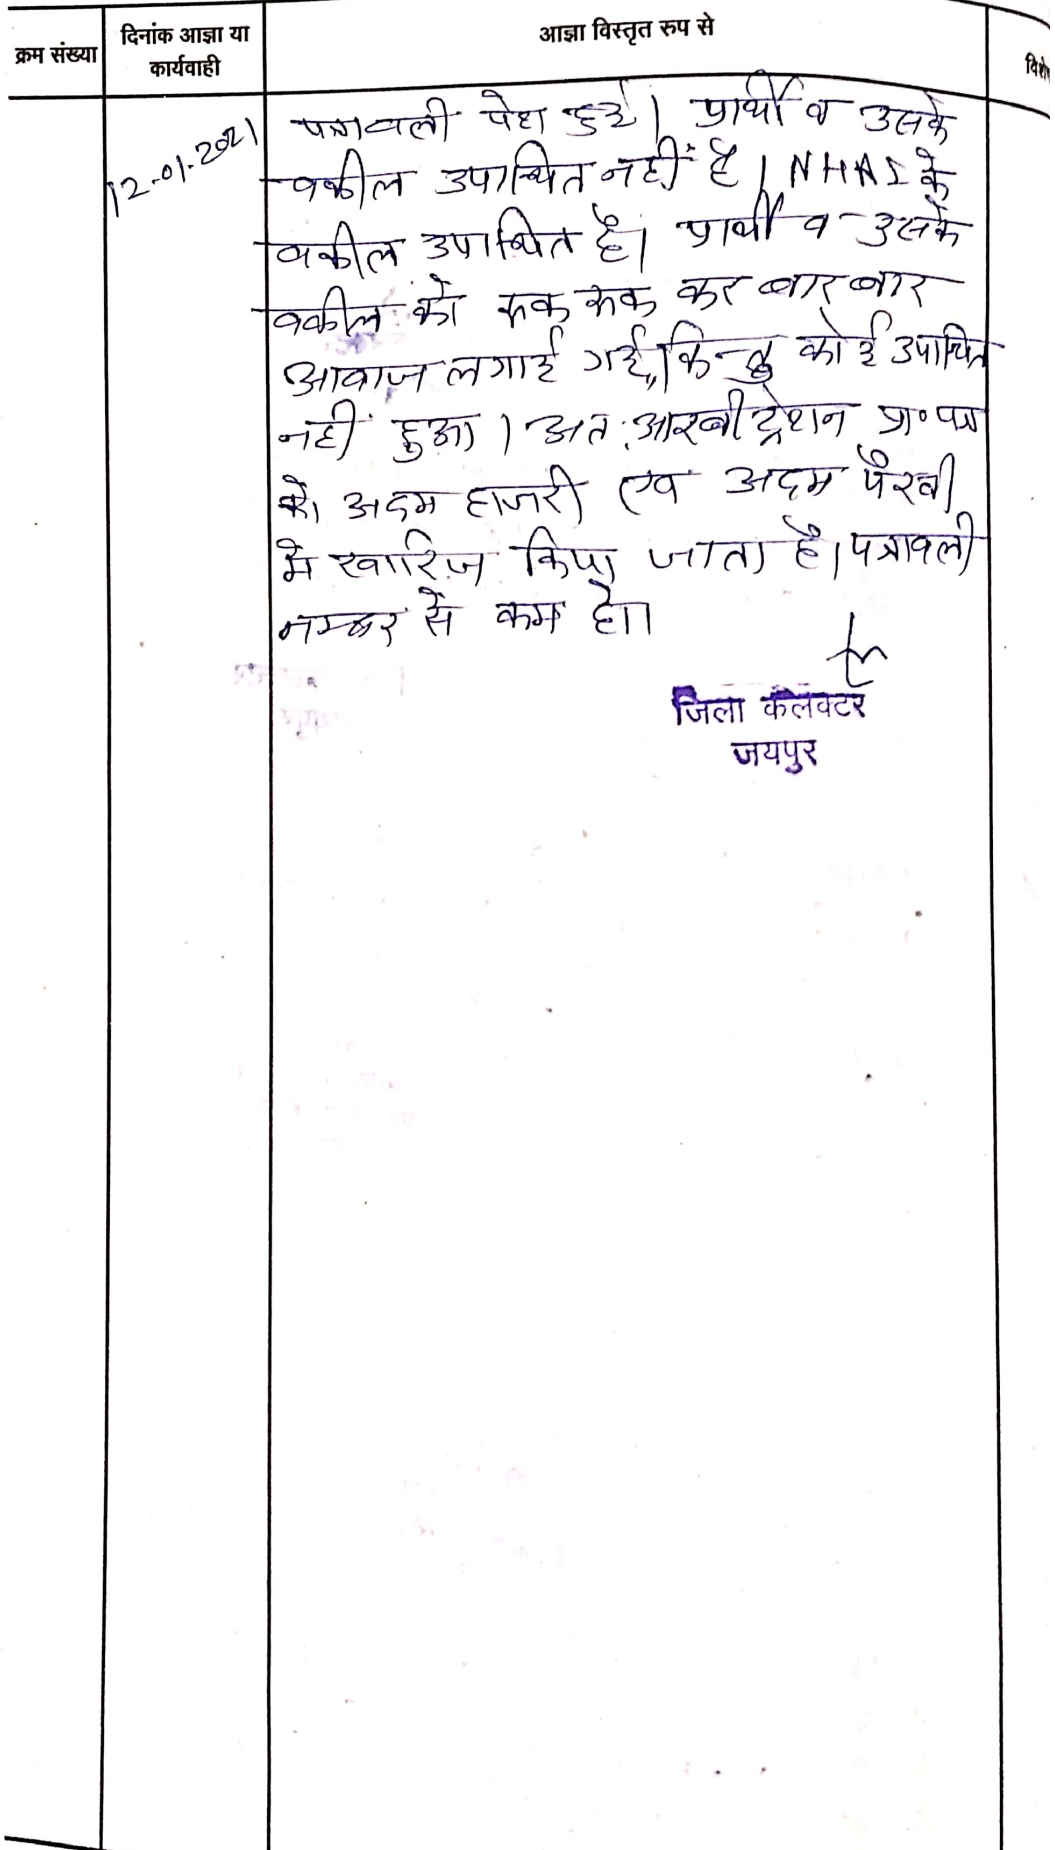 क्रम संख्या
दिनांक आज्ञा या
कार्यवाही
आज्ञा विस्तृत रुप से
12-01-2021
पत्रावली पेश हुई। प्रार्थी व उसके
वकील उपस्थित नहीं है। NHAI के
वकील उपस्थित है। प्रार्थी व उसके
वकील को रूक रूक कर बार बार
आवाज लगाई गई, किन्तु कोई उपस्थित
नहीं हुआ। अतः आरबीट्रेशन प्रा० पत्र
को अदम हाजरी एवं अदम पैरवी
में खारिज किया जाता है। पत्रावली
नम्बर से कम हो।
जिला कलेक्टर
जयपुर